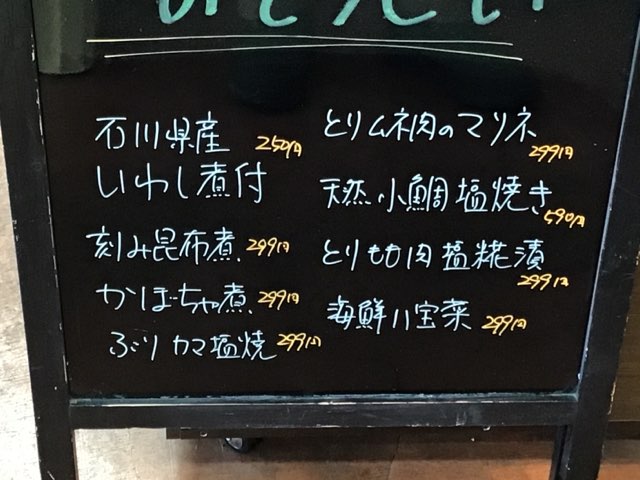 石川県産 250円
いわし煮付
刻み昆布煮 299円
かぼちゃ煮 299円
ぶりカマ塩焼 299円
とりムネ肉のマリネ
299円
天然小鯛塩焼き
590円
とりもも肉塩糀漬
299円
海鮮八宝菜 299円